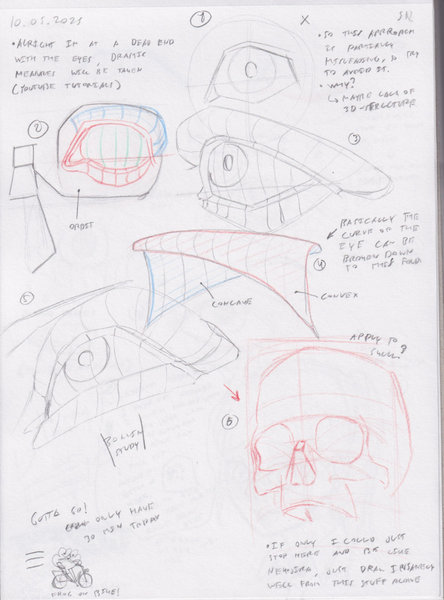 10.05.2021
①
X
• ALRIGHT IM AT A DEAD END
WITH THE EYES, DRASTIC
MEASURES WILL BE TAKEN
(YOUTUBE TUTORIALS)
• SO THIS APPROACH
IS PARTIALLY
MISLEADING, SO TRY
TO AVOID IT.
• WHY?
↳ MAYBE LACK OF
3D-STRUCTURE
②
ORBIT
③
BASICALLY THE
CURVE OF THE
EYE CAN BE
BROKEN DOWN
TO THIS FORM
④
CONCAVE
CONVEX
⑤
APPLY TO
SKULL?
⑥
STUDY
GOTTA GO!
ONLY HAVE
30 MIN TODAY
FROG ON BIKE!
• IF ONLY I COULD JUST
STOP HERE AND BE LIKE
JUST DRAW INSANELY
WELL FROM THIS STUFF ALONE